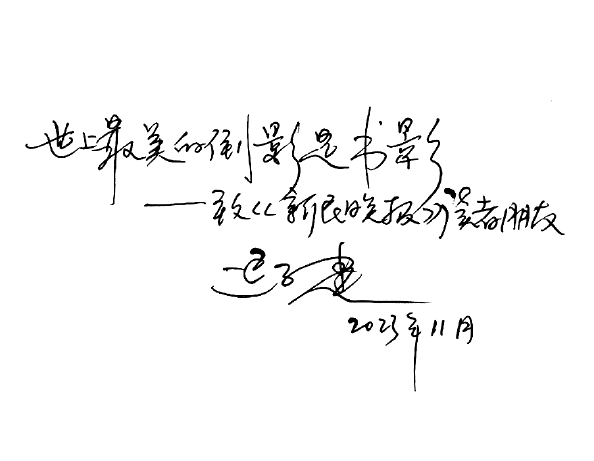 世上最美的倒影是书影
——致《新民晚报》读者朋友
迟子建
2023年11月